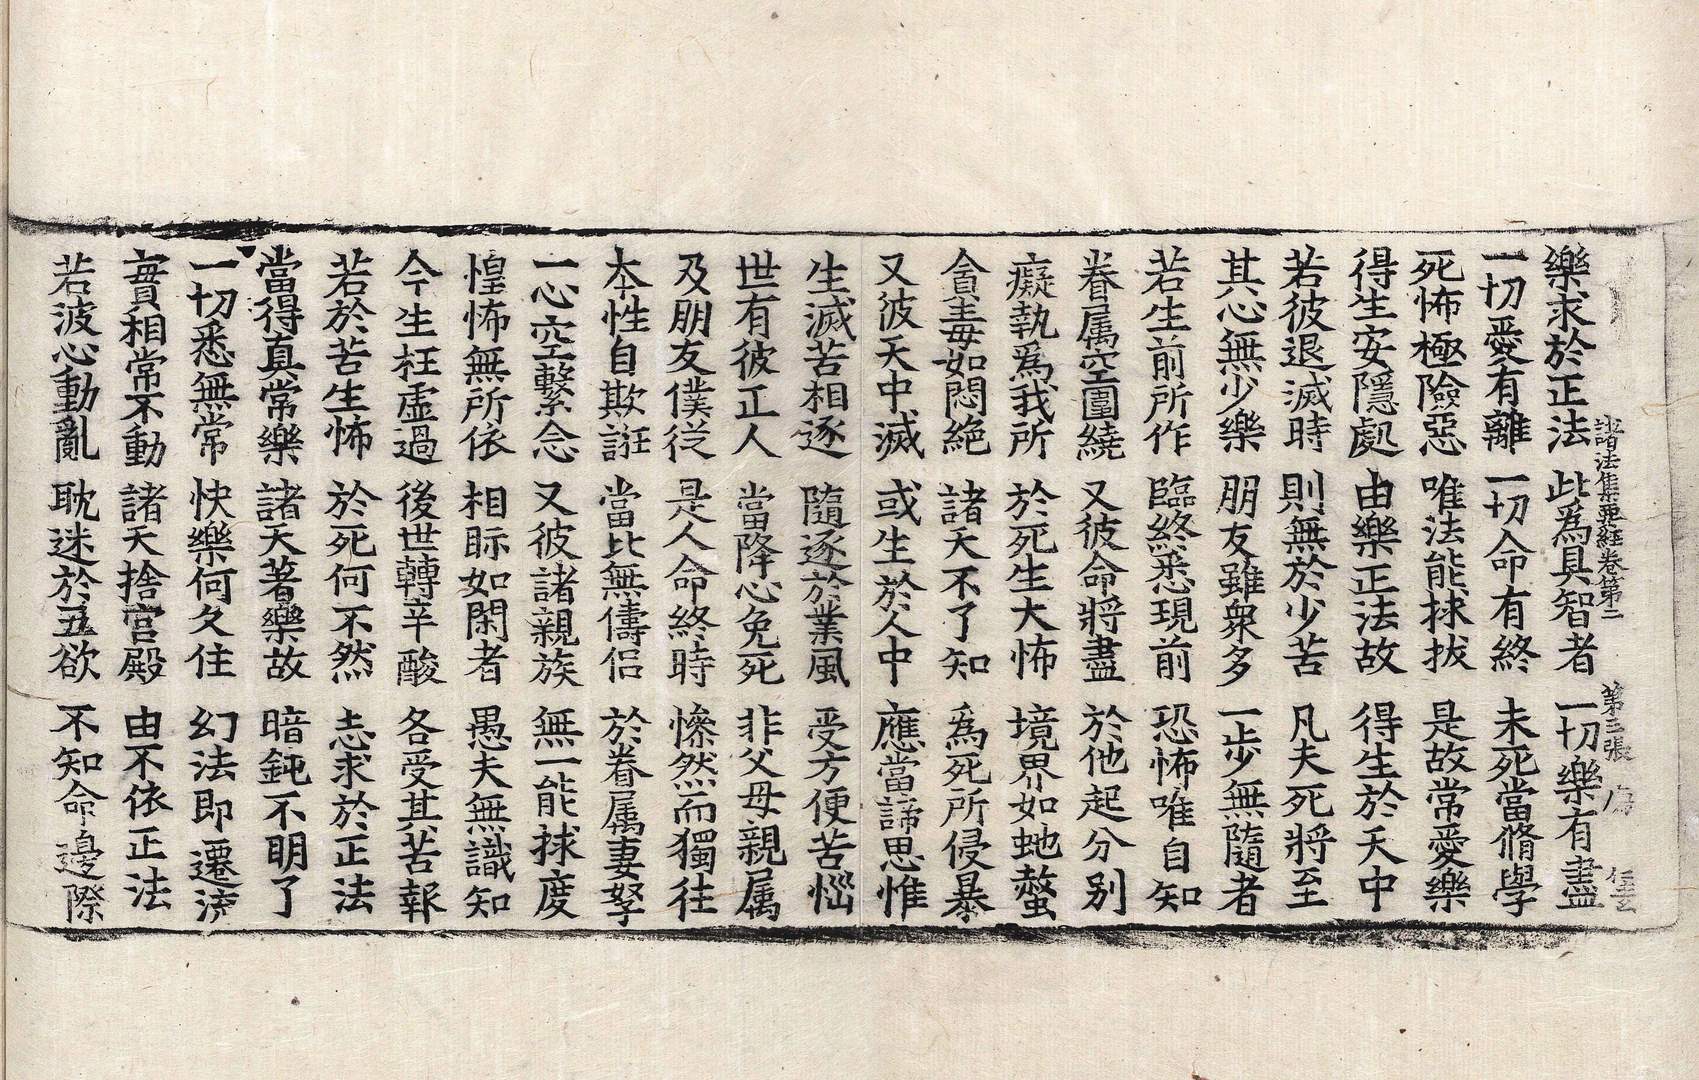 諸法集要經卷第二 第三張
樂求於正法 此為具智者 一切樂有盡
一切愛有離 一切命有終 未死當脩學
死怖極險惡 唯法能捄拔 是故常愛樂
得生安隱處 由樂正法故 得生於天中
若彼退滅時 則無於少苦 凡夫死將至
其心無少樂 朋友雖衆多 一步無隨者
若生前所作 臨終悉現前 恐怖唯自知
眷属空圍繞 又彼命將盡 於他起分别
癡執為我所 於死生大怖 境界如虵螫
貪毒如悶絶 諸天不了知 為死所侵暴
又彼天中滅 或生於人中 應當諦思惟
生滅苦相逐 隨逐於業風 受方便苦惱
世有彼正人 當降心免死 非父母親属
及朋友僕從 是人命終時 慘然而獨往
本性自欺誑 當此無儔侣 於眷属妻孥
一心空繫念 又彼諸親族 無一能捄度
惶怖無所依 相眎如閑者 愚夫無識知
今生枉虛過 後世轉辛酸 各受其苦報
若於苦生怖 於死何不然 志求於正法
當得真常樂 諸天著樂故 暗鈍不明了
一切悉無常 快樂何久住 幻法即遷流
實相常不動 諸天捨宮殿 由不依正法
若波心動亂 耽迷於五欲 不知命邊際